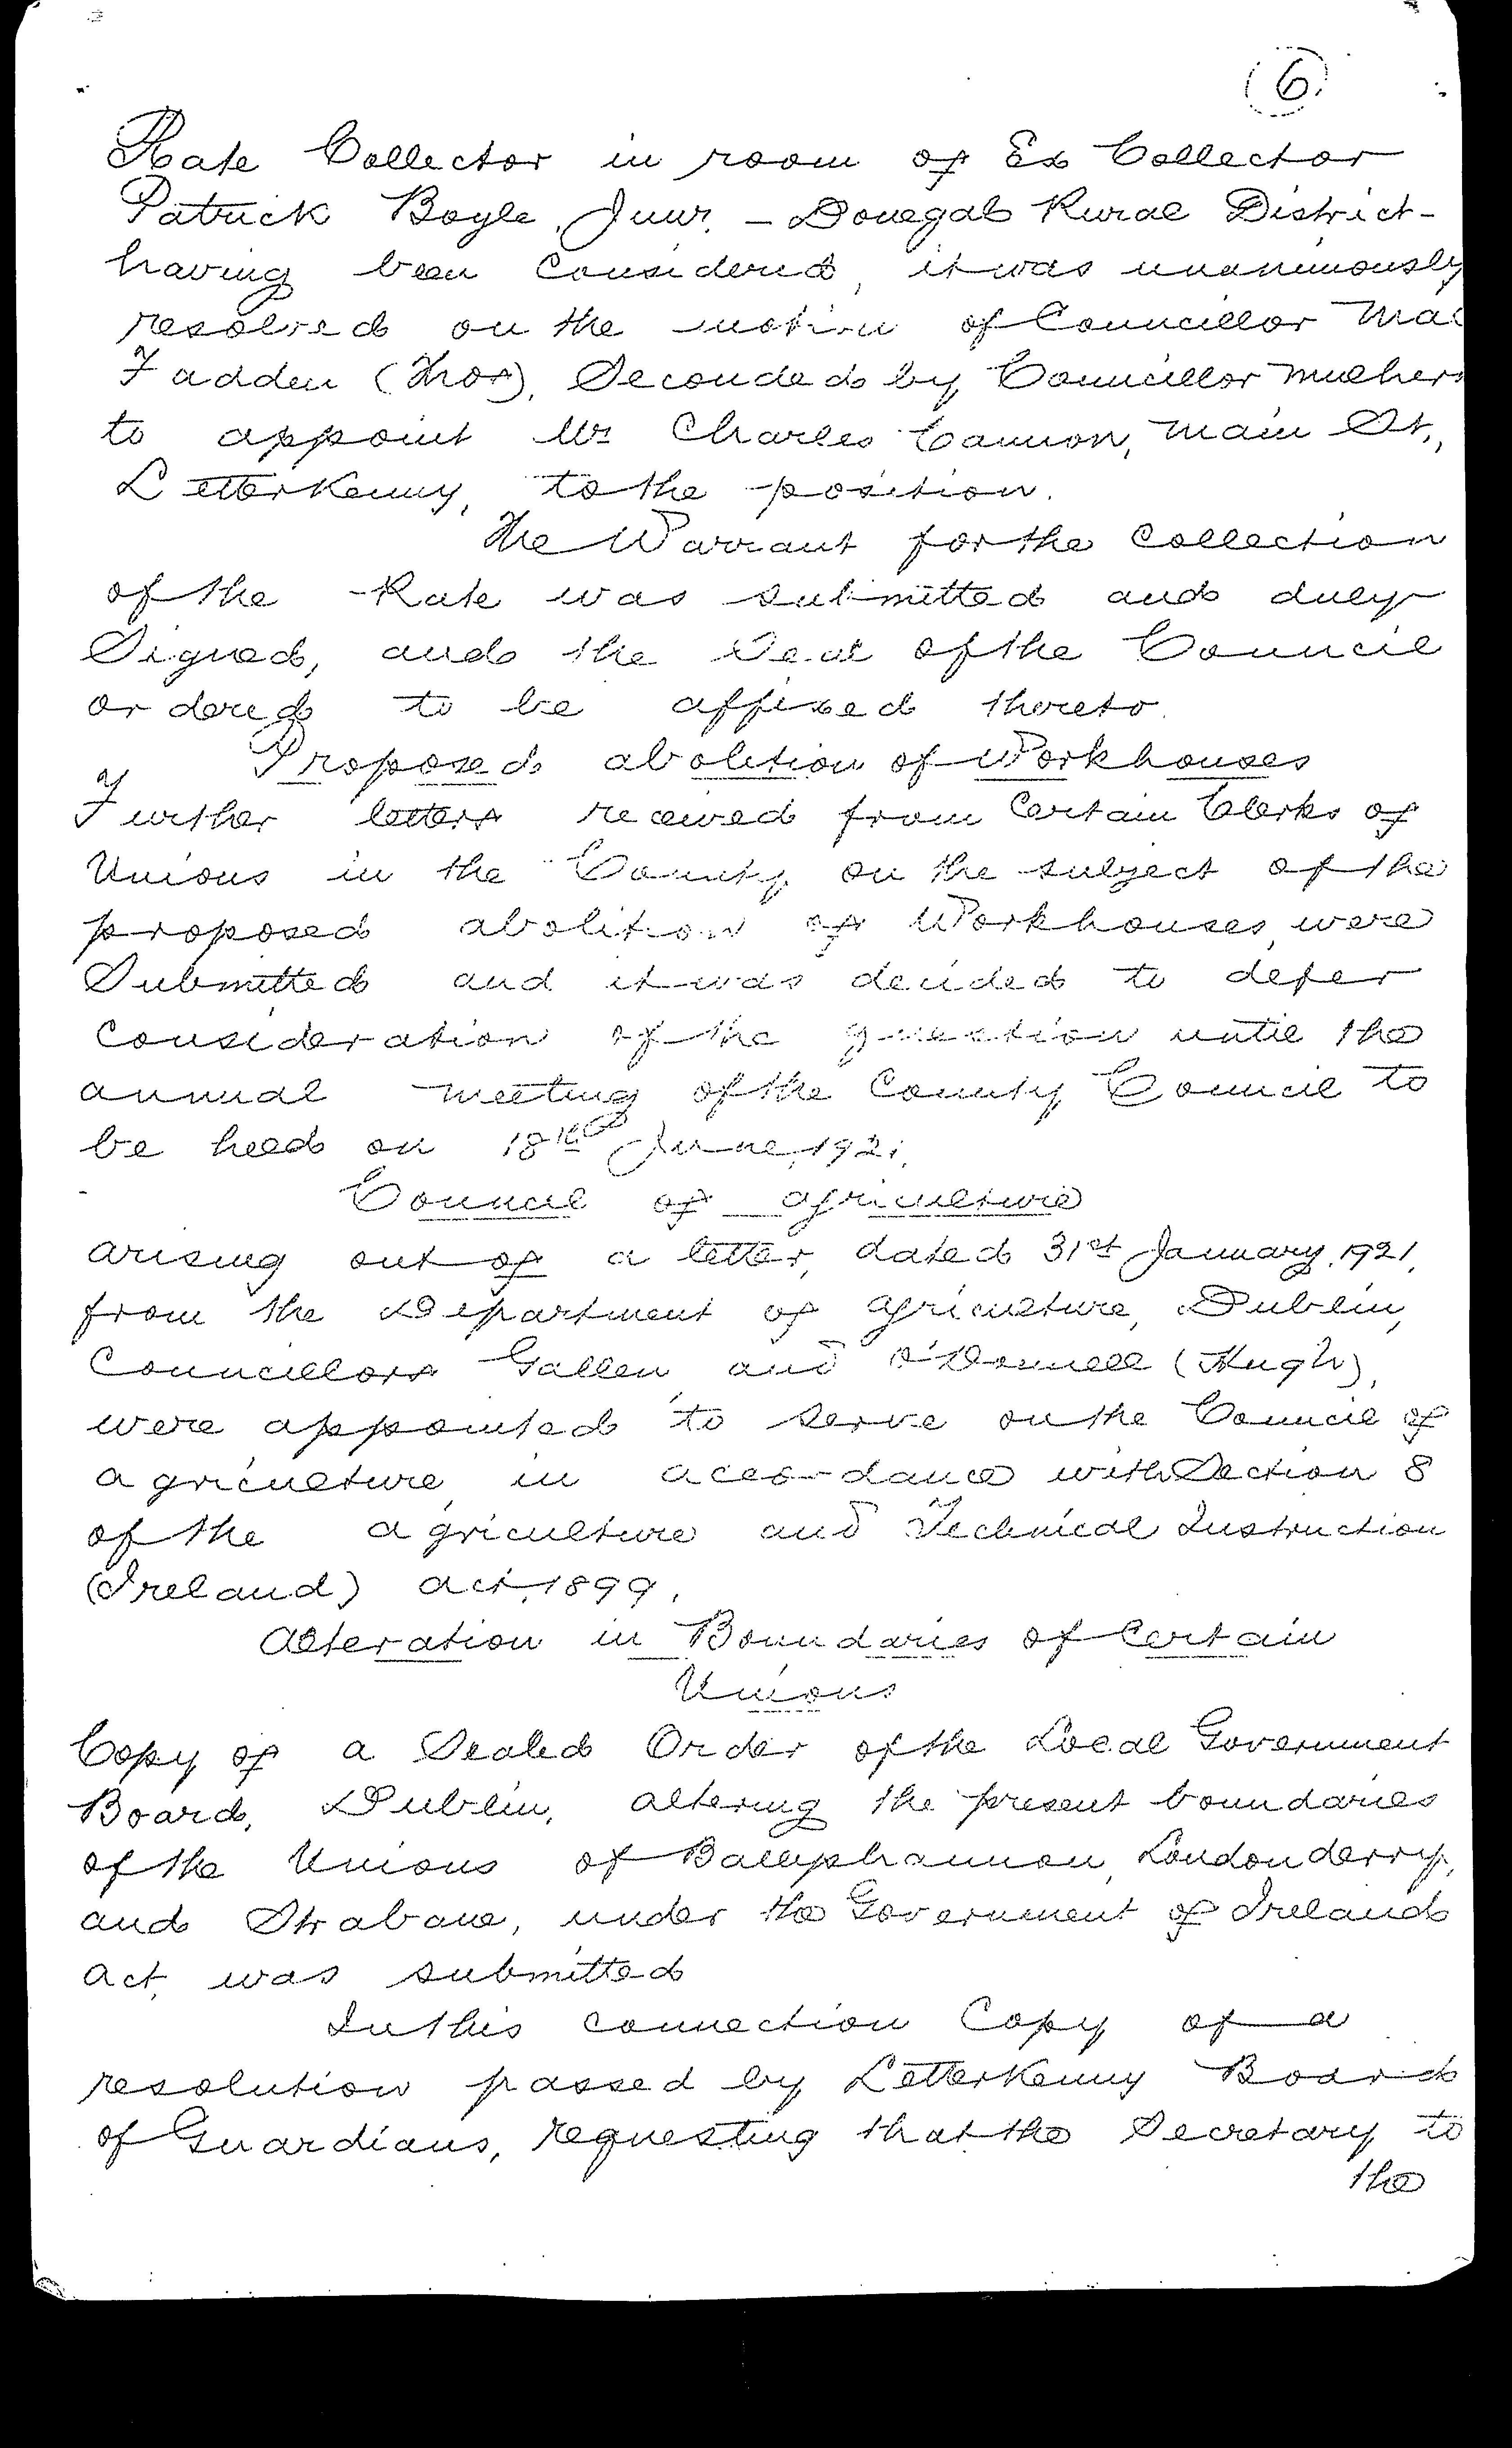 6
Rate Collector in room of Ex Collector
Patrick Boyle, Junr. - Donegal Rural District -
having been considered, it was unanimously
resolved on the motion of Councillor Mac
Fadden (Thos), Seconded by Councillor Mulhern
to appoint Mr Charles Cannon, Main St.,
Letterkenny, to the position.
The Warrant for the Collection
of the Rate was submitted and duly
Signed, and the Seal of the Council
ordered to be affixed thereto.
Proposed abolition of Workhouses
Further letters received from Certain Clerks of
Unions in the County on the subject of the
proposed abolition of Workhouses were
Submitted and it was decided to defer
Consideration of the question until the
annual meeting of the County Council to
be held on 18th June, 1921.
Council of Agriculture
arising out of a letter, dated 31st January, 1921,
from the Department of Agriculture, Dublin,
Councillors Gallen and O'Donnell (Hugh),
were appointed to serve on the Council of
Agriculture in accordance with Section 8
of the Agriculture and Technical Instruction
(Ireland) Act, 1899.
Alteration in Boundaries of Certain
Unions
Copy of a Sealed Order of the Local Government
Board, Dublin, altering the present boundaries
of the Unions of Ballyshannon, Londonderry,
and Strabane, under the Government of Ireland
Act, was submitted
In this connection Copy of a
resolution passed by Letterkenny Board
of Guardians, requesting that the Secretary to
the